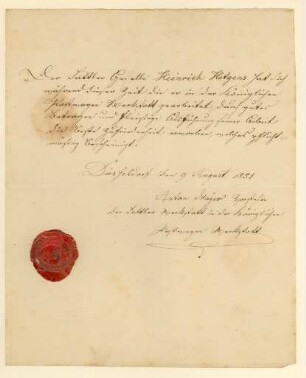 Der Sattler Geselle Heinrich Hetgens hat sich
während dieser Zeit die er in der Königlichen
Postwagen Werkstatt gearbeitet, durch gutes
Betragen und fleissige Ausführung seiner Arbeit
die beste Zufriedenheit erworben, welches pflicht
mässig bescheinigt.
Düsseldorf den 9 August 1851
Anton Mayer
der Sattler Werkstatt in der Königlichen
Postwagen Werkstatt